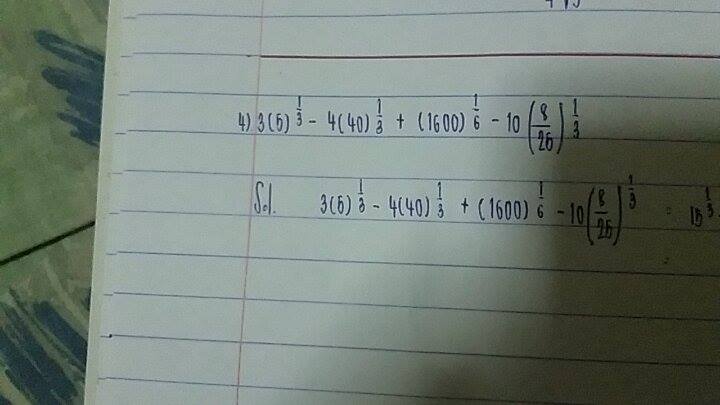 4) 3(5)^{1/3} - 4(40)^{1/3} + (1600)^{1/6} - 10(8/25)^{1/3}
Sol. 3(5)^{1/3} - 4(40)^{1/3} + (1600)^{1/6} - 10(8/25)^{1/3} = 15^{1/3}